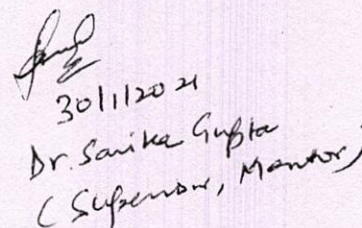 30/1/2021
Dr. Sarika Gupta
(Supervisor, Mentor)